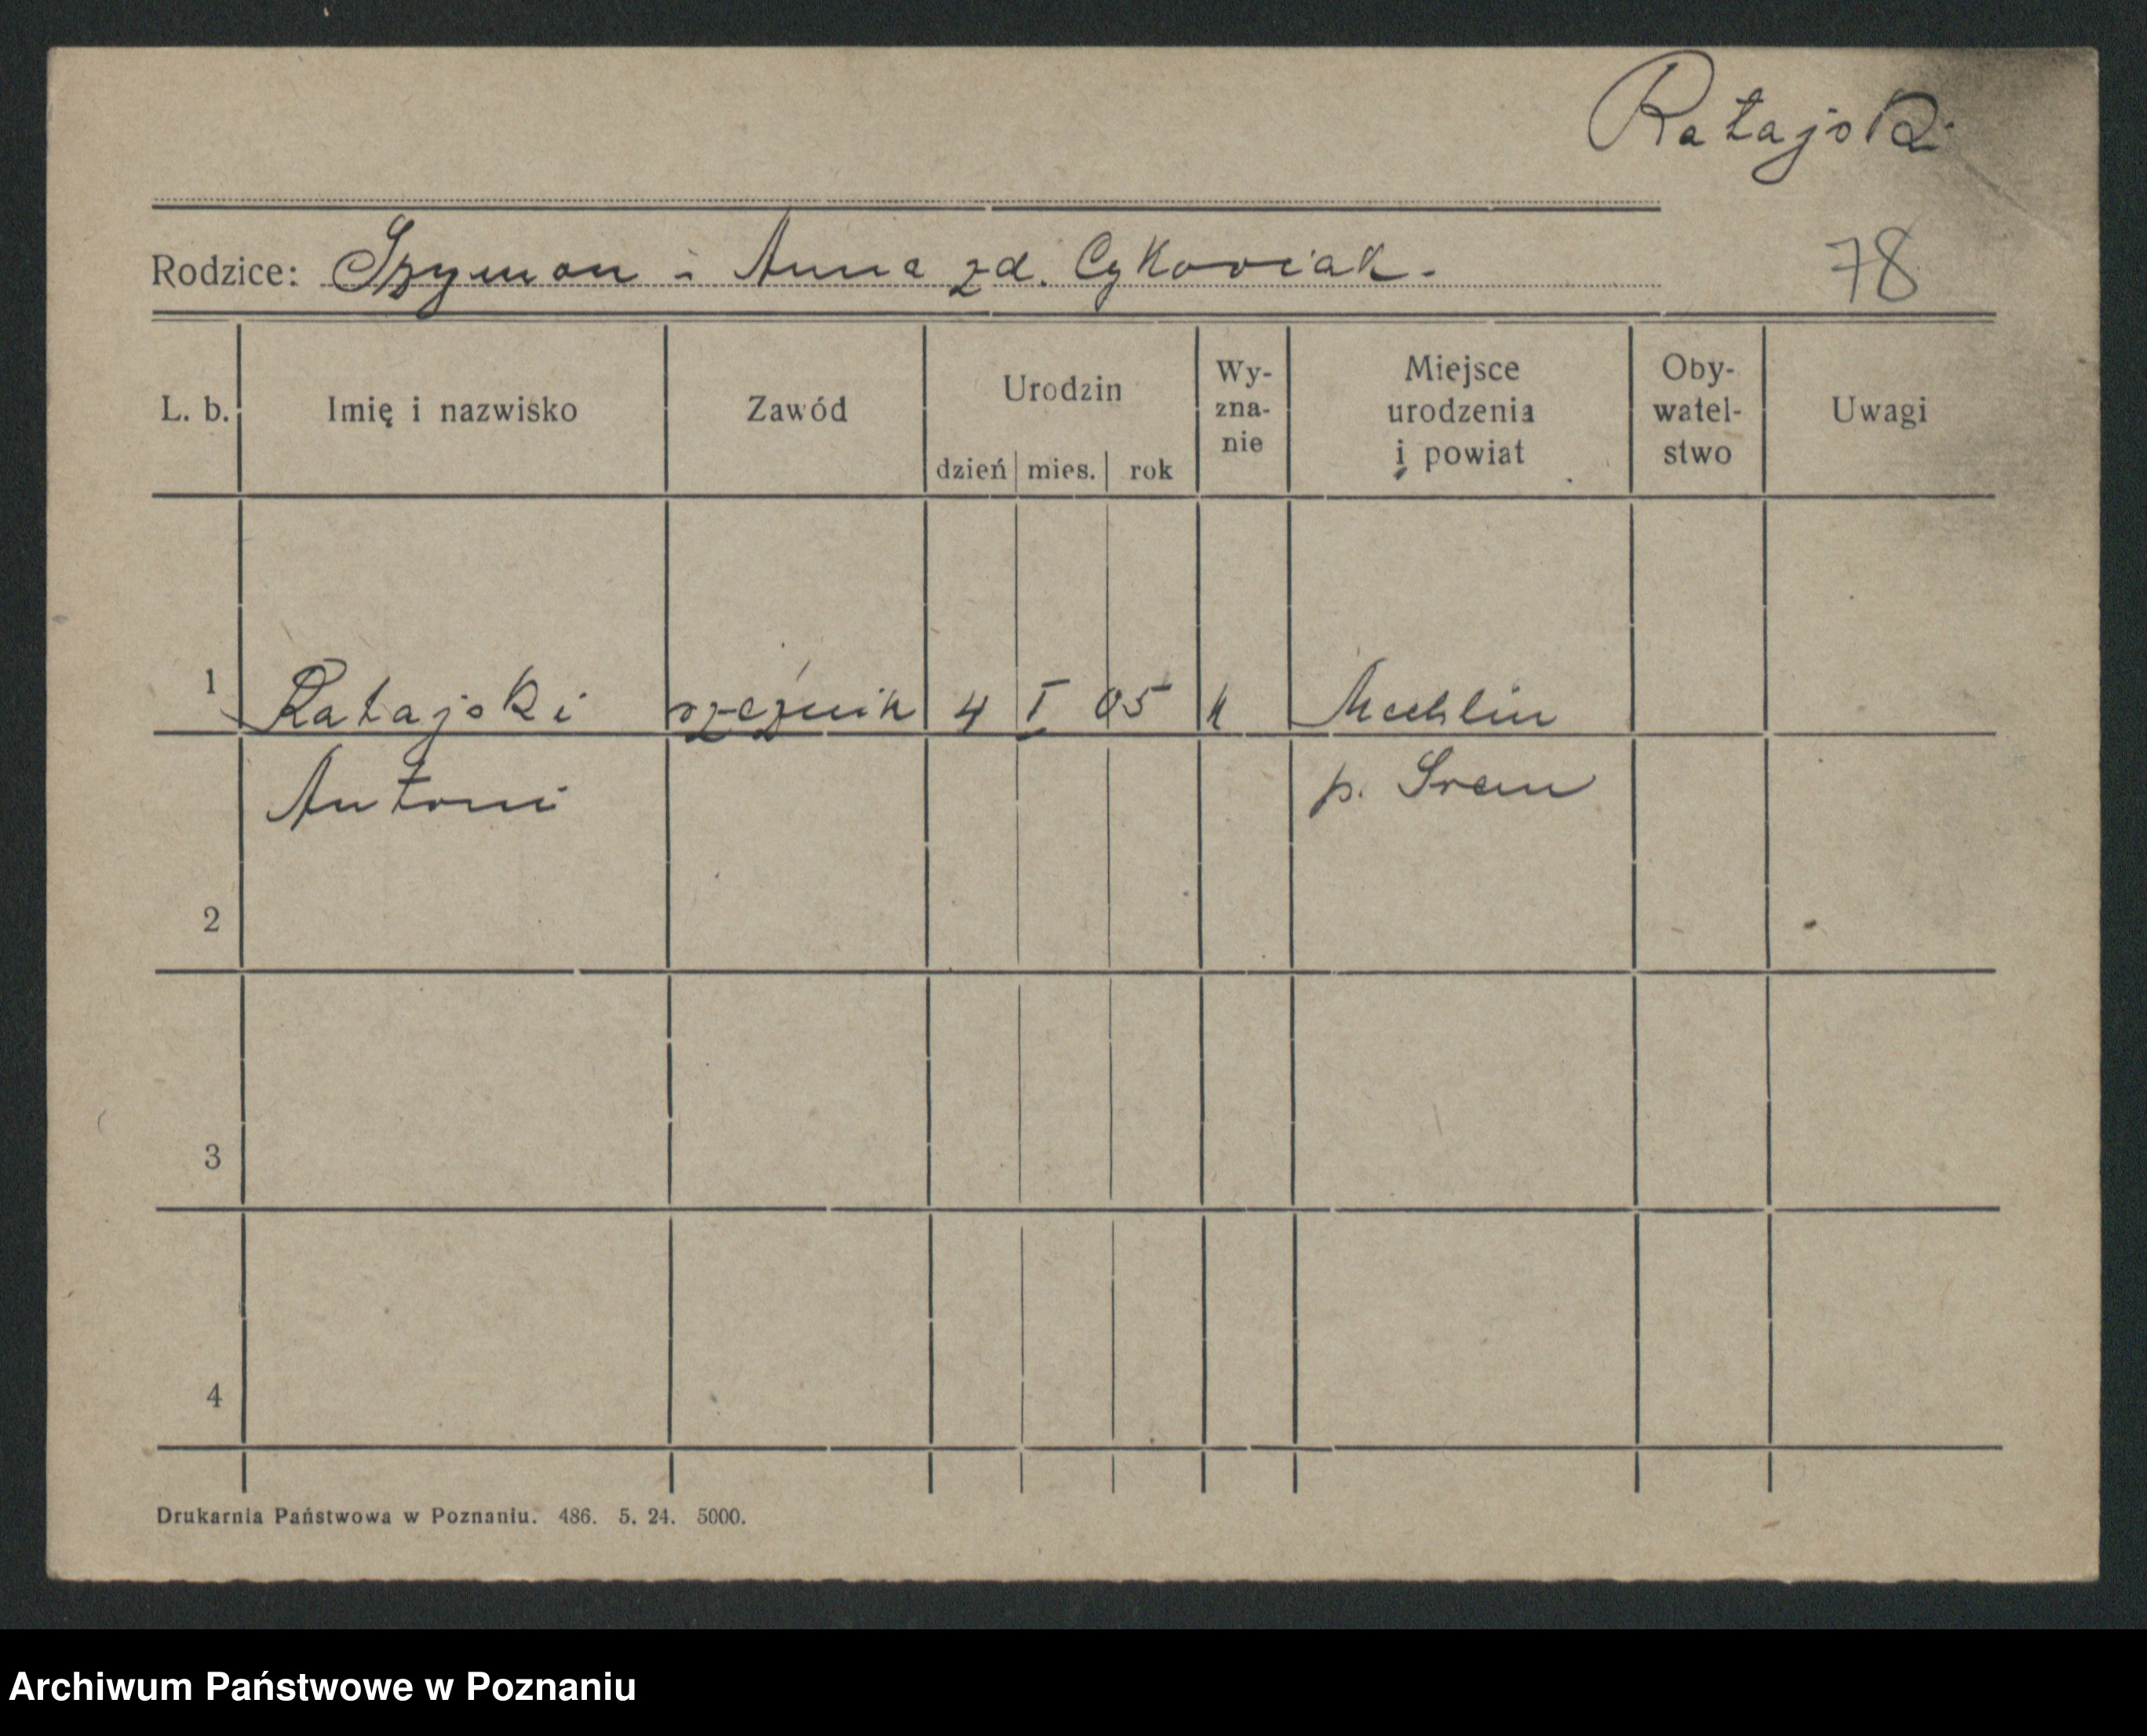 Ratajski
Rodzice: Szymon i Anna zd. Cykowiak.
78
L. b. Imię i nazwisko Zawód Urodzin dzień mies. rok Wy-zna-nie Miejsce urodzenia i powiat Oby-watel-stwo Uwagi
1 Ratajski rzeźnik 4 I 05 k Mechlin
Antoni p. Srem
2
3
4
Drukarnia Państwowa w Poznaniu. 486. 5. 24. 5000.
Archiwum Państwowe w Poznaniu